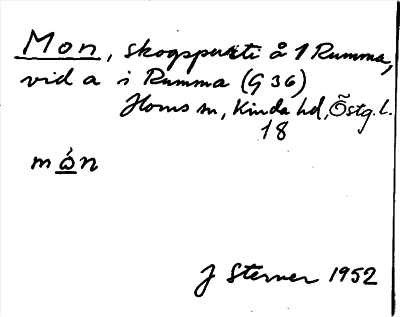 Mon, skogsparti å 1 Rumma,
vid a i Rumma (G 36)
Horns sn, Kinda hd, Östg. l.
18
mån
J Sterner 1952